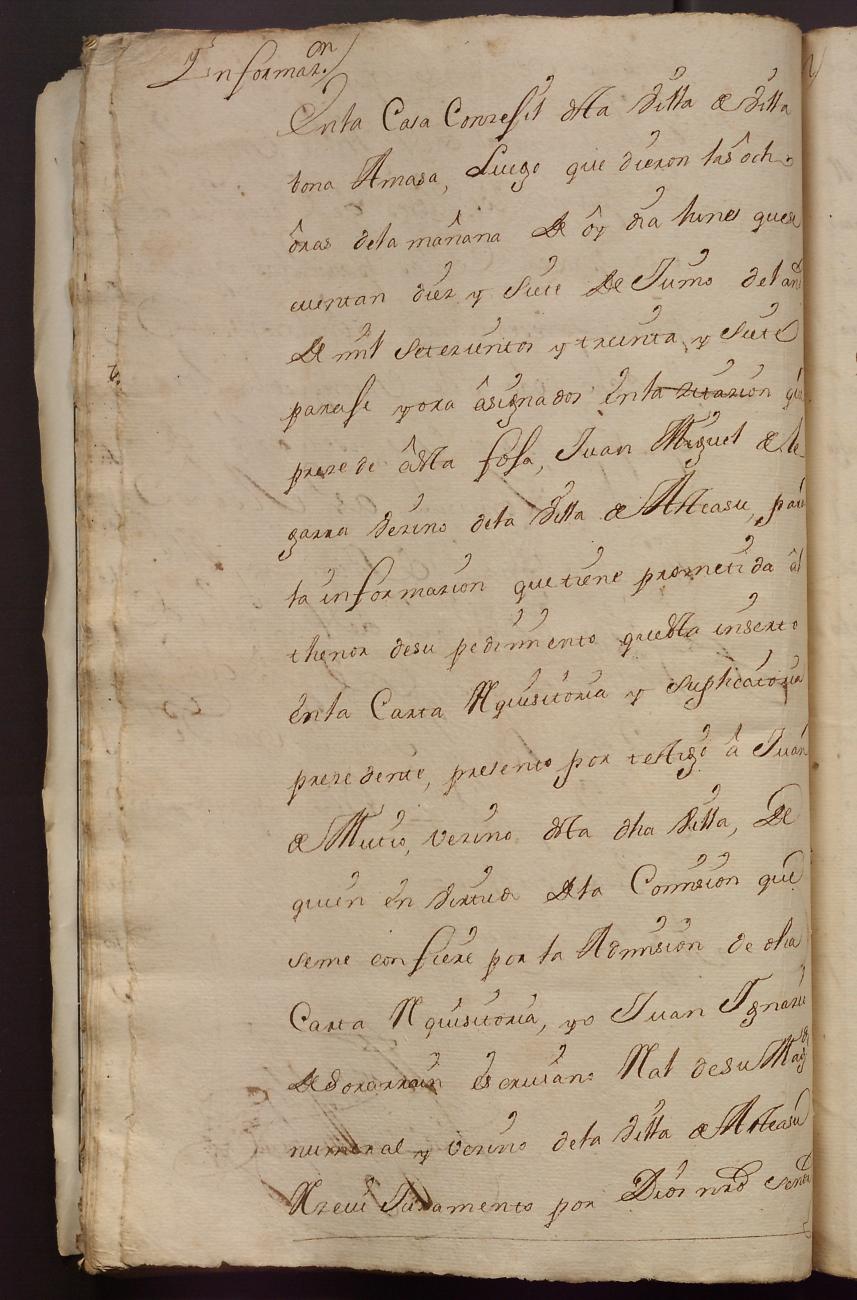 Informaz.on
Enla Casa Conzejil desta Villa de Villa
bona Amasa, Luego que dieron las ôcho
ôras dela mañana de ôy dia lunes que se
cuentan diez y siete de Junio del año
de mil setezientos y treinta y siete
paraje y ora âsignados en la zitazion que
prezede âesta foja, Juan Miguel de Le
garra vezino dela Villa de Arteasu, para
la informazion que tiene prometida âl
thenor desu pedimento que esta inserto
enla Carta Rquisitoria y suplicatoria
prezedente, presento por testigo â Juan
de Mutio, vezino desta dha Villa, De
quien en virtud dela Comision que
seme confiere por la Admision de dha
Carta Rquisitoria, yo Juan Ignazio
de Sorarrain escrivano Ral desu Magd
numeral y vezino dela Villa de Arteasu
Rzevi Juramento por Dios nro Señor